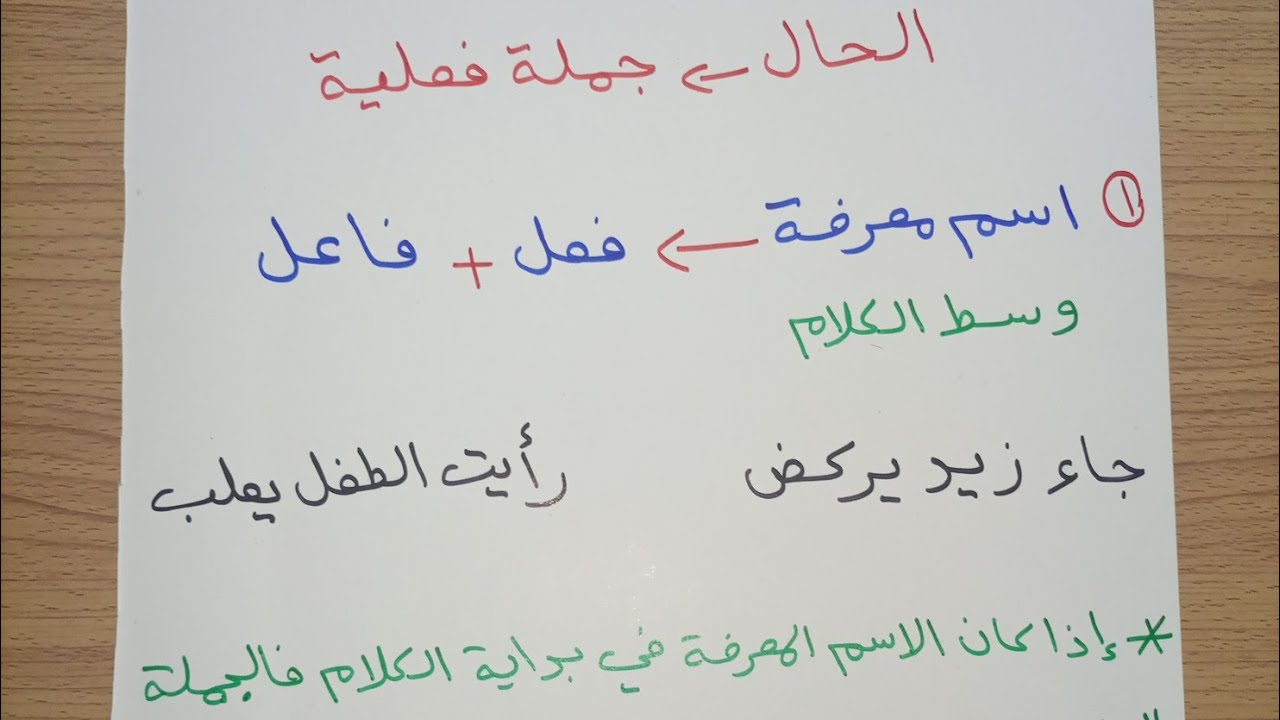 الحال ← جملة فعلية
① اسم معرفة ← فعل + فاعل
وسط الكلام
جاء زيد يركض رأيت الطفل يعلب
* إذا كان الاسم المعرفة في بداية الكلام فالجملة